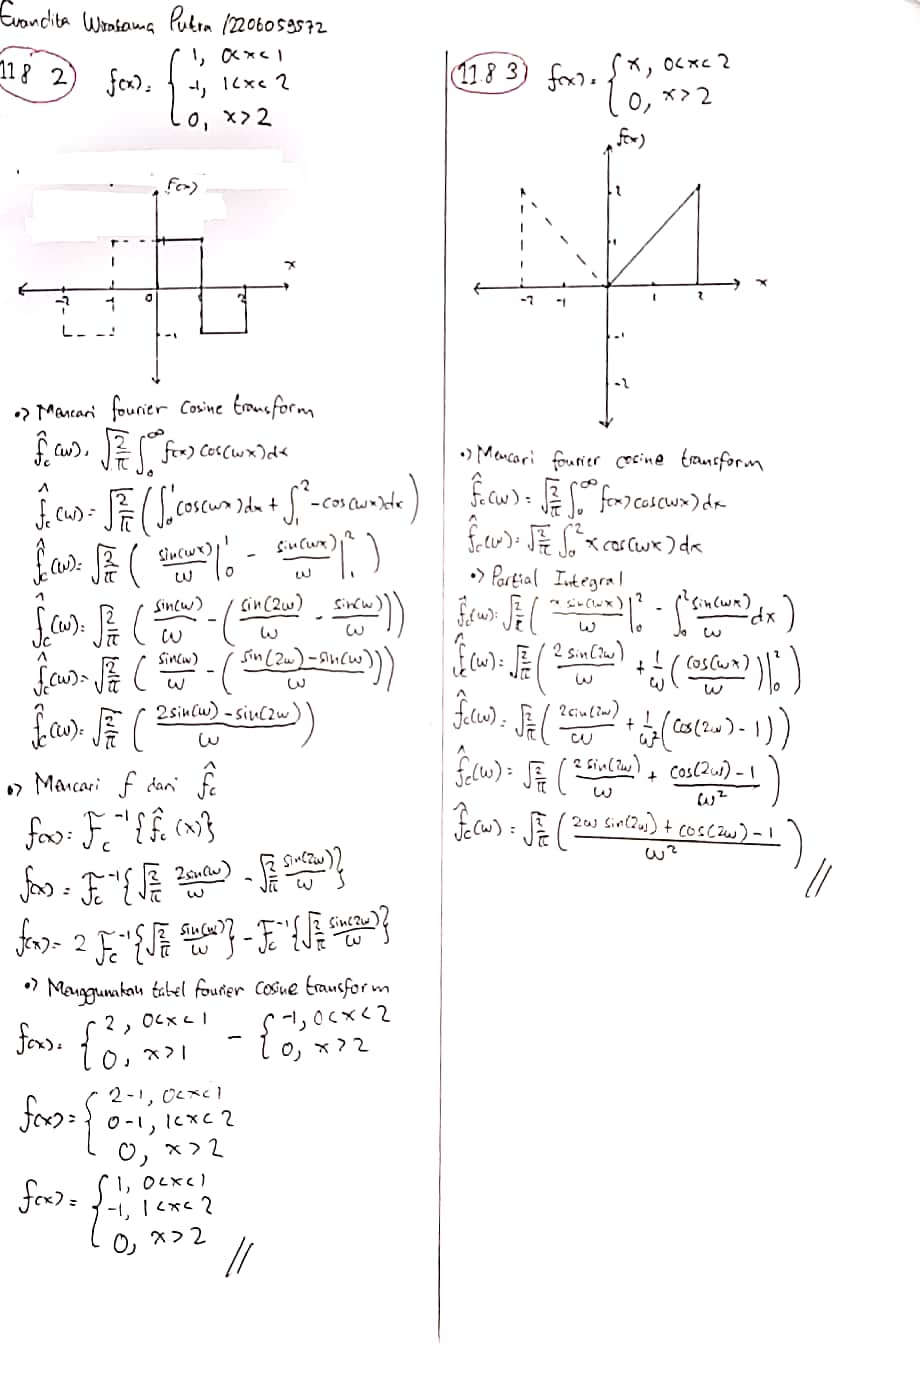 Evandita Wiratama Putra /2206059572
11 8 2
f(x) = { 1, 0<x<1
-1, 1<x<2
0, x>2
f(x)
x
-2 -1 0 2
-1
•> Mencari fourier cosine transform
f̂c(w) = √(2/π) ∫₀^∞ f(x) cos(wx)dx
f̂c(w) = √(2/π) (∫₀¹ cos(wx)dx + ∫₁² -cos(wx)dx)
f̂c(w) = √(2/π) ( sin(wx)/w |₀¹ - sin(wx)/w |₁² )
f̂c(w) = √(2/π) ( sin(w)/w - ( sin(2w)/w - sin(w)/w ))
f̂c(w) = √(2/π) ( sin(w)/w - ( (sin(2w)-sin(w))/w ))
f̂c(w) = √(2/π) ( (2sin(w)-sin(2w))/w )
•> Mencari f dari f̂c
f(x) = Fc⁻¹{f̂c(x)}
f(x) = Fc⁻¹{√(2/π) 2sin(w)/w - √(2/π) sin(2w)/w}
f(x) = 2 Fc⁻¹{√(2/π) sin(w)/w} - Fc⁻¹{√(2/π) sin(2w)/w}
•> Menggunakan tabel fourier cosine transform
f(x) = { 2, 0<x<1 - { -1, 0<x<2
0, x>1 0, x>2
f(x) = { 2-1, 0<x<1
0-1, 1<x<2
0, x>2
f(x) = { 1, 0<x<1
-1, 1<x<2
0, x>2 //
11.8 3
f(x) = { x, 0<x<2
0, x>2
f(x)
2
1
-2 -1 1 2 x
-1
-2
•> Mencari fourier cosine transform
f̂c(w) = √(2/π) ∫₀^∞ f(x) cos(wx)dx
f̂c(w) = √(2/π) ∫₀² x cos(wx)dx
•> Partial Integral
f̂c(w) = √(2/π) ( x sin(wx)/w |₀² - ∫₀² sin(wx)/w dx )
f̂c(w) = √(2/π) ( 2 sin(2w)/w + 1/w ( cos(wx)/w )|₀² )
f̂c(w) = √(2/π) ( 2sin(2w)/w + 1/w² (cos(2w)-1))
f̂c(w) = √(2/π) ( 2 sin(2w)/w + (cos(2w)-1)/w² )
f̂c(w) = √(2/π) ( (2w sin(2w) + cos(2w)-1)/w² ) //